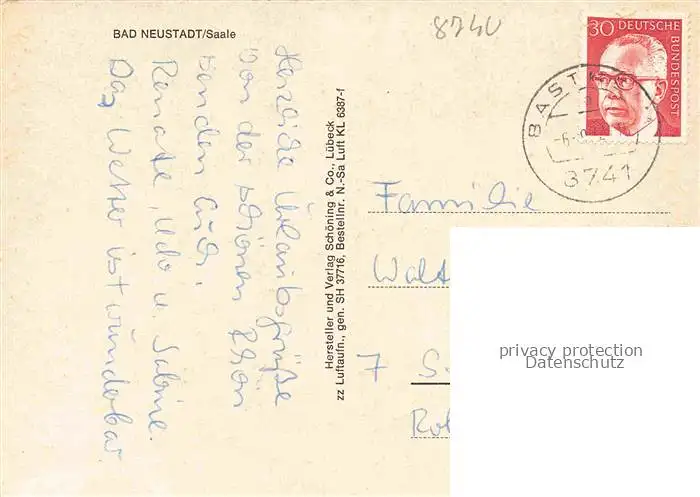 BAD NEUSTADT/Saale
8740
30 DEUTSCHE BUNDESPOST
BAST
8741
Herzliche Urlaubsgrüße
von der schönen Rhön
senden Euch
Renate, Udo u. Sabine.
Das Wetter ist wunderbar.
Hersteller und Verlag Schöning & Co., Lübeck
zz Luftaufn., gen. SH 37716, Bestellnr. N.-Sa Luft KL 6387-f
Familie
Walt
7 S
Rol
privacy protection
Datenschutz